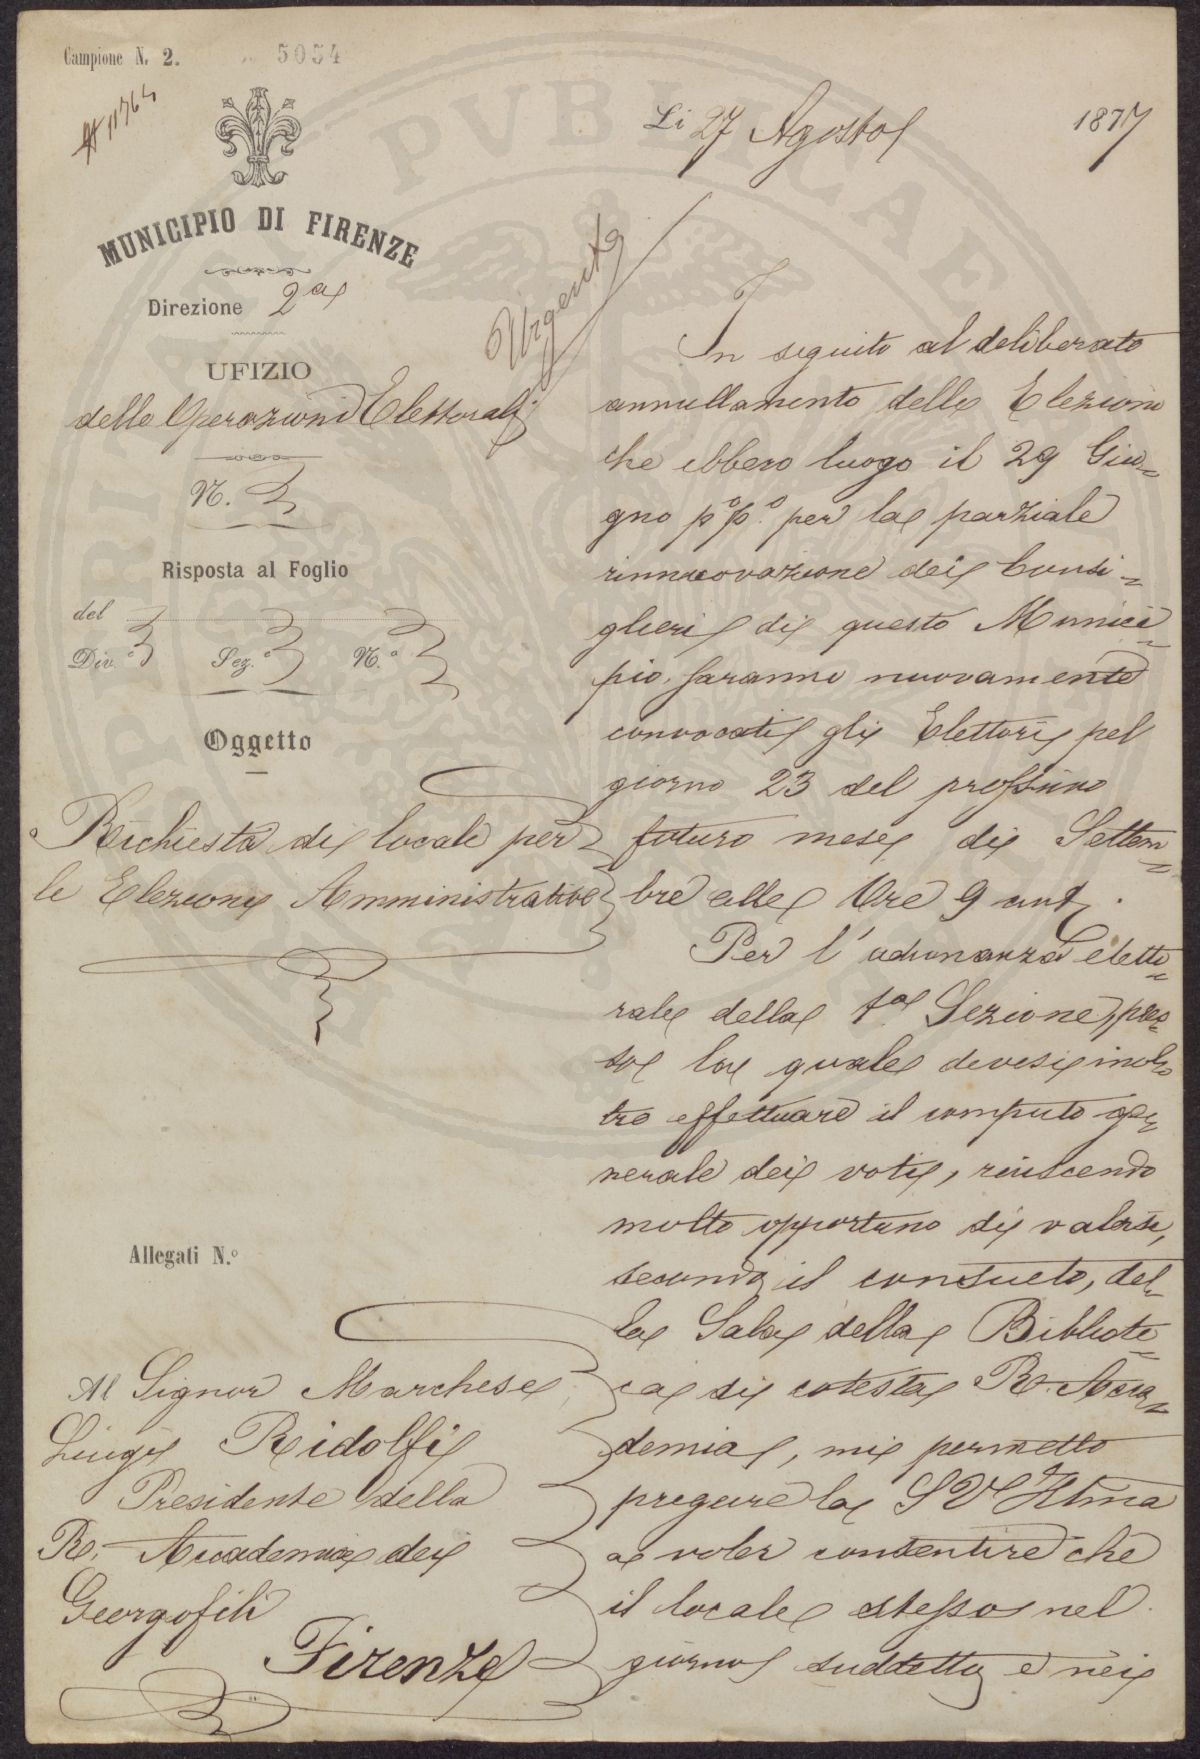 Campione N. 2.
5054
11764
MUNICIPIO DI FIRENZE
Direzione 2a
UFIZIO
delle Operazioni Elettorali
N.
Risposta al Foglio
del
Div.e Sez.e N.o
Oggetto
Richiesta di locale per
le Elezioni Amministrative
Allegati N.o
Al Signor Marchese
Luigi Ridolfi
Presidente della
R. Accademia dei
Georgofili
Firenze
Li 27 Agosto 1877
Urgente
In seguito al deliberato
annullamento delle Elezioni
che ebbero luogo il 29 Giu=
gno p.o p.o per la parziale
rinnuovazione dei Consi=
glieri di questo Munici=
pio, saranno nuovamente
convocati gli Elettori pel
giorno 23 del prossimo
futuro mese di Settem=
bre alle Ore 9 ant.
Per l'adunanza eletto=
rale della 1a Sezione, pres=
so la quale devesi inol=
tre effettuare il computo ge=
nerale dei voti, riuscendo
molto opportuno di valersi,
secondo il consueto, del=
la Sala della Bibliote=
ca di cotesta R. Acca=
demia, mi permetto
pregare la S V Illma
a voler consentire che
il locale stesso nel
giorno suddetto e nei
PVBLICAE